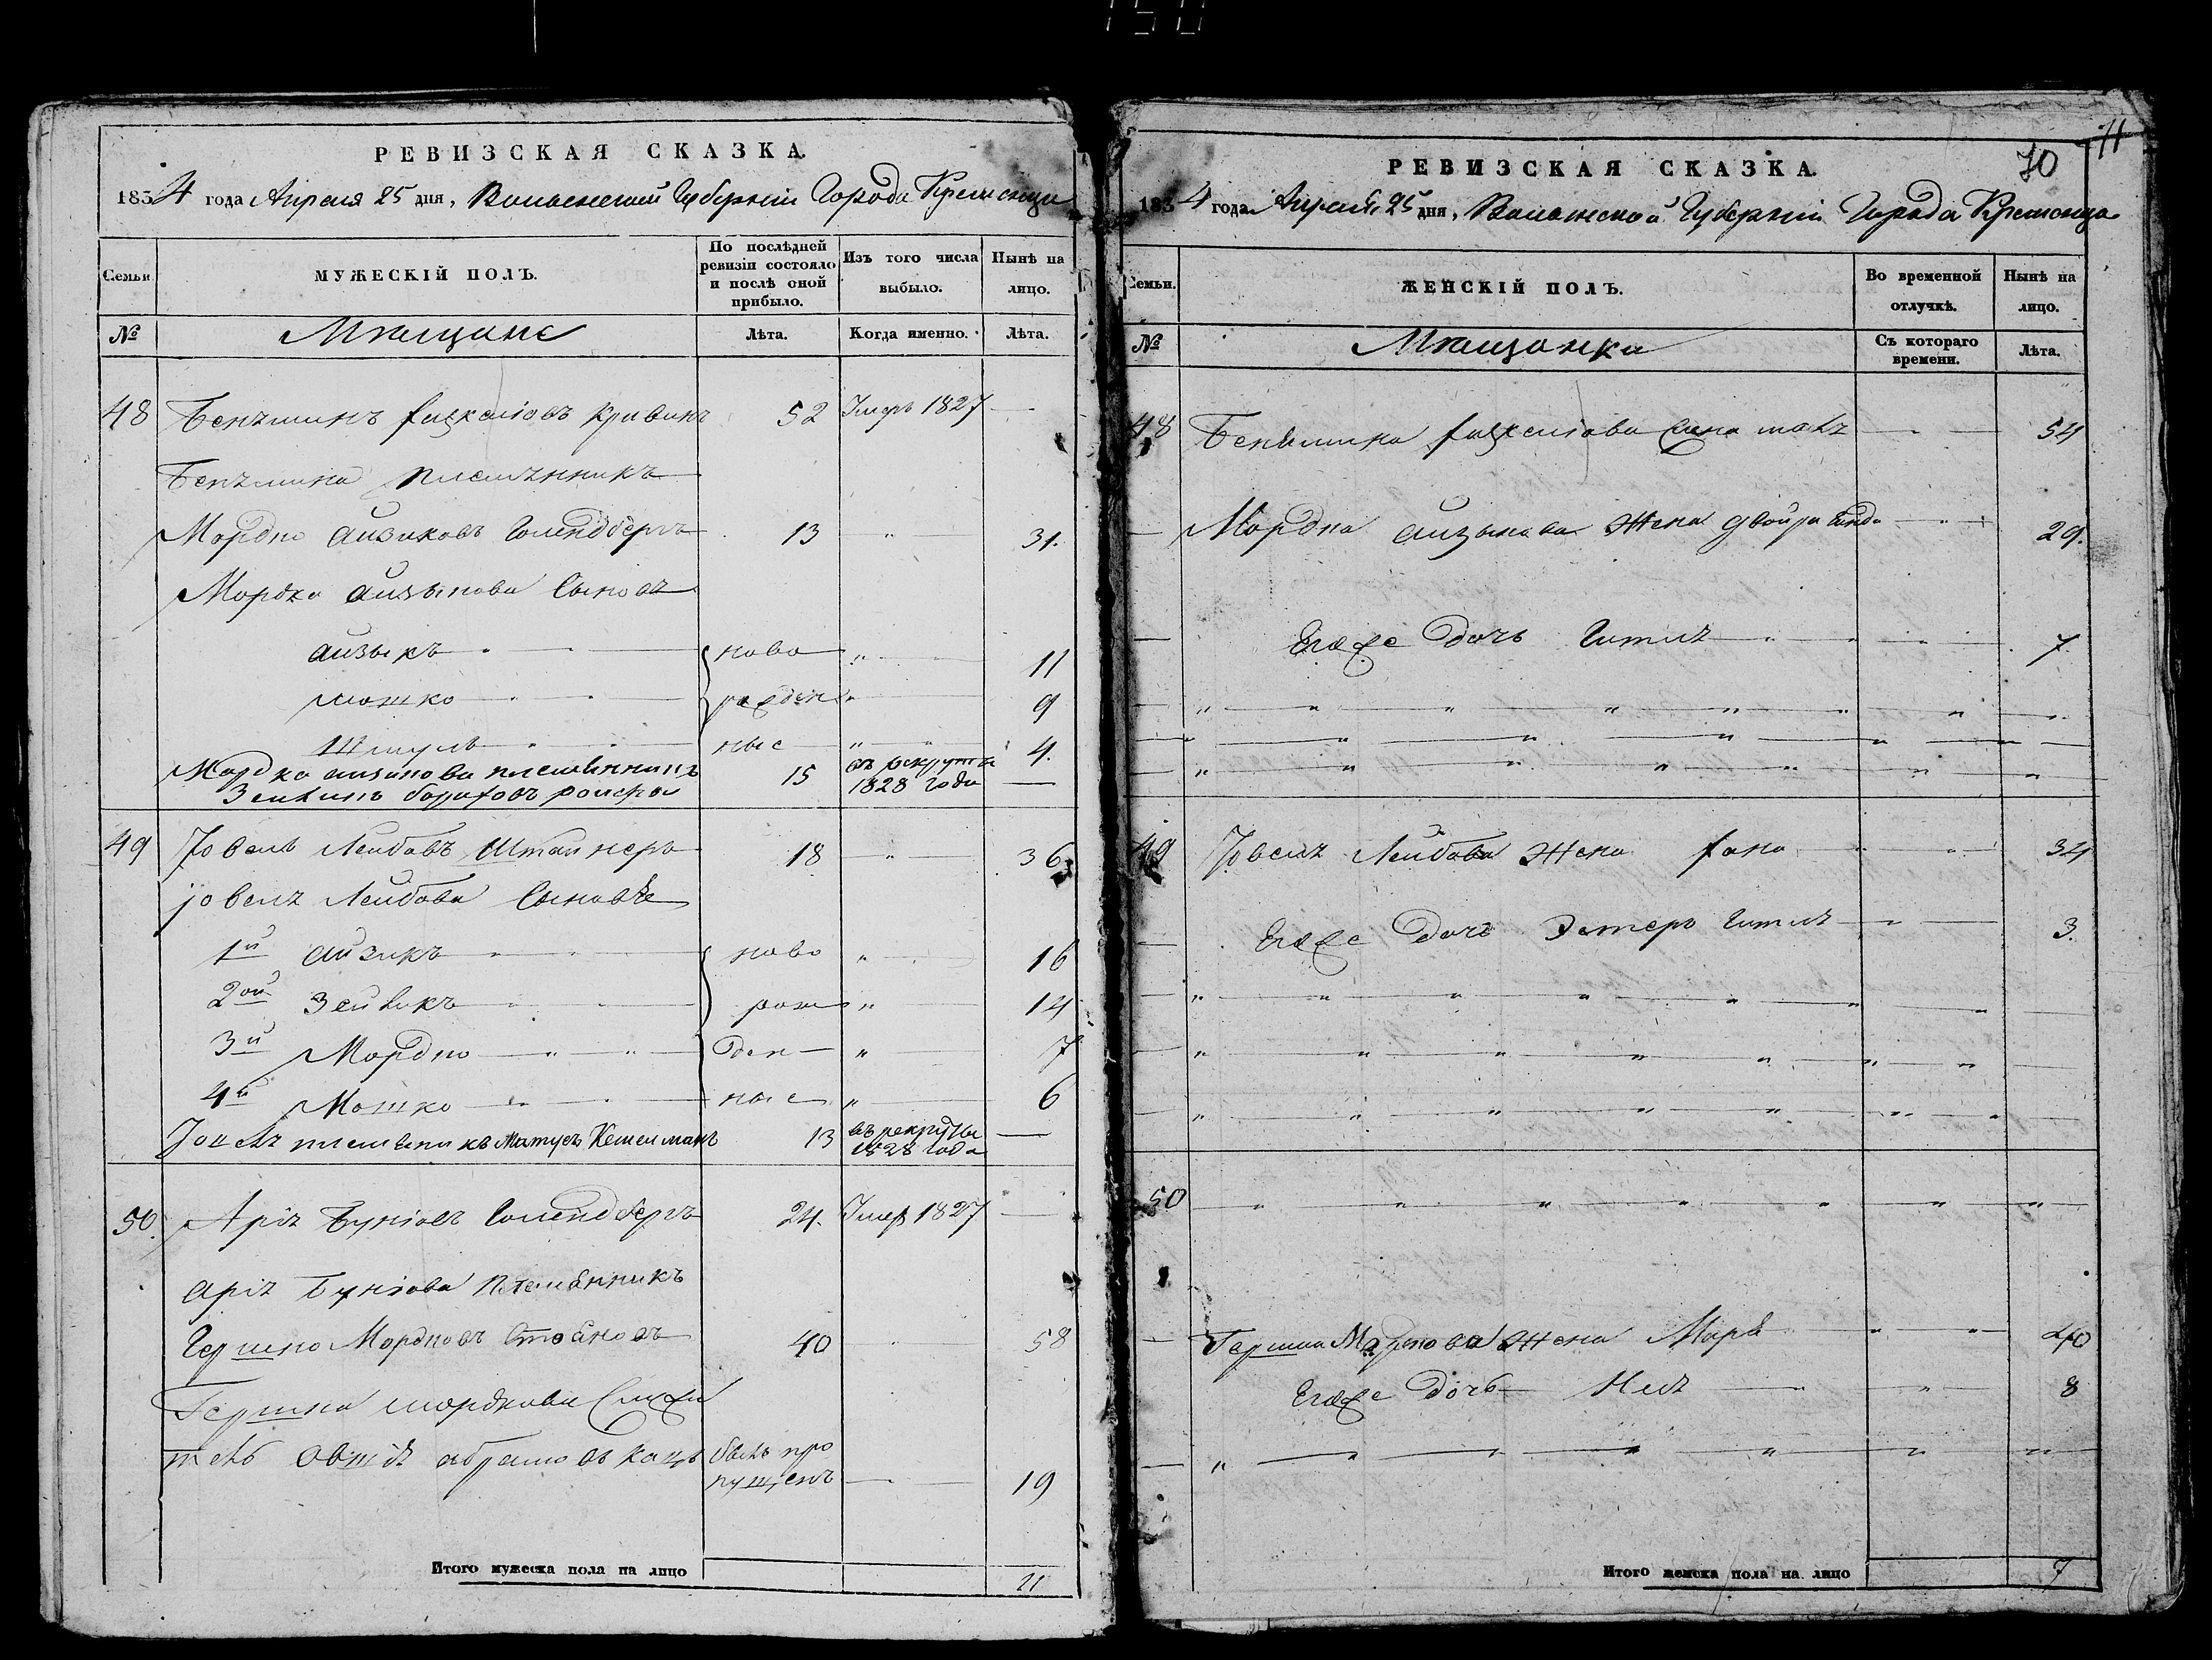 РЕВИЗСКАЯ СКАЗКА.
1834 года Апреля 25 дня, Волынской Губернии Города Кременца
Семьи
МУЖЕСКІЙ ПОЛЪ.
По послѣдней ревизіи состояло и послѣ оной прибыло.
Изъ того числа выбыло.
Нынѣ на лицо.
№
Мѣщане
Лѣта.
Когда именно.
Лѣта.
48 Беньминъ 52 Умеръ 1827
Беньмина племянникъ
Мордко Айзиковъ Голендберъ 13 31.
Мордка Айзыкова Сыновъ
Айзыкъ ново 11
Мошко рожден 9
Шмуль ные 4.
Мордка Айзикова племянникъ 15 въ рекруты
1828 года
49 Іовель Лейбовъ Штайнеръ 18 36
Іовелъ Лейбова Сыновѣ
1й Айзикъ ново 16
2ой Зейликъ рож 14
3й Мордко ден 7
4й Мошко ные 6
племянникъ Матусъ 13 въ рекруты
1828 года
50. Арiъ Бунiовъ Голендберъ 24. Умеръ 1827
Арiъ Бунiова Племянникъ
Гершко Мордковъ 40 58
Гершка Мордкова
Абрамовъ Кацъ былъ про
пущенъ 19
Итого мужеска пола на лицо 11
РЕВИЗСКАЯ СКАЗКА.
70
11
1834 года Апреля 25 дня, Волынской Губернии Города Кременца
Семьи.
ЖЕНСКІЙ ПОЛЪ.
Во временной отлучкѣ.
Нынѣ на лицо.
№
Мѣщанки
Съ котораго времени.
Лѣта.
48 Беньмина 54
Мордка Айзыкова Жена Двойра 29.
Его же дочь Гитлъ 7
49 Іовелъ Лейбова Жена Хана 34
Его же Дочь Эстеръ Гитлъ 3.
50
Гершка Мордкова Жена 40
Его же Дочь 8
Итого женска пола на лицо 7